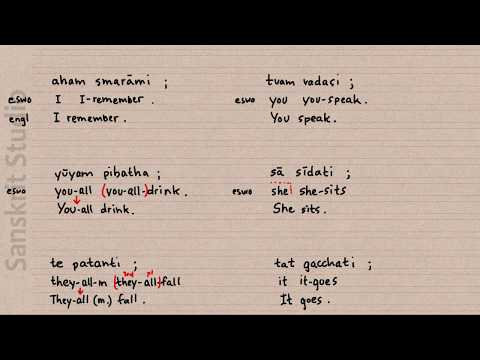 Sanskrit Studio
aham smarāmi ;
eswo I I-remember .
engl I remember .
tvam vadasi ;
eswo you you-speak .
You speak .
yūyam pibatha ;
eswo you-all (you-all-)drink .
You-all drink .
sā sīdati ;
eswo she she-sits
She sits .
te patanti ;
they-all-m (they-all-)fall
They-all (m.) fall .
tat gacchati ;
it it-goes
It goes .